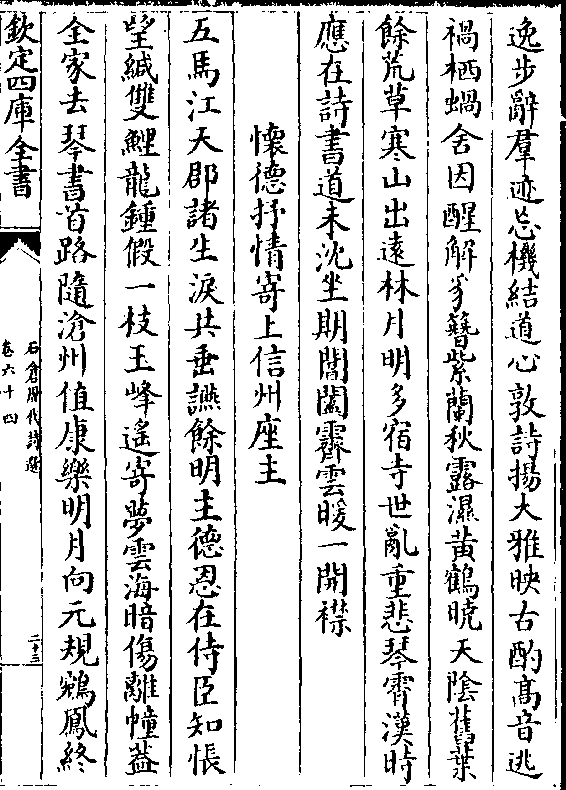 逸步辭羣迹忘機結道心敦詩揚大雅映古酌髙音逃
禍栖蝸舍因醒解豸簪紫蘭秋露濕黄鶴曉天陰舊葉
餘荒草寒山出遠林月明多宿寺世亂重悲琴霄漢時
應在詩書道未沈坐期閶闔霽雲暖一開襟
懷德抒情寄上信州座主
五馬江天郡諸生淚共垂讌餘明主德恩在侍臣知悵
望緘雙鯉龍鍾假一枝玉峰遥寄夢雲海暗傷離幢葢
全家去琴書首路隨滄州值康樂明月向元規鵷鳳終
欽定四庫全書
石倉歴代詩選
卷六十四
二十三